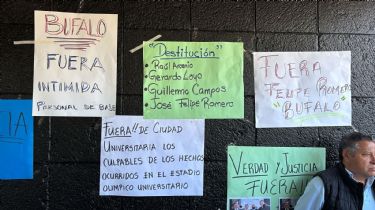 BUFALO
FUERA
INTIMIDA
PERSONAL DE BASE
"Destitución"
• Raúl Arcenio
• Gerardo Loyo
• Guillermo Campos
• José Felipe Romero
FUERA
FELIPE ROMERO
"BUFALO"
IA
FUERA!! DE CIUDAD
UNIVERSITARIA LOS
CULPABLES DE LOS HECHOS
OCURRIDOS EN EL ESTADIO
OLIMPICO UNIVERSITARIO
VERDAD Y JUSTICIA
FUERA!